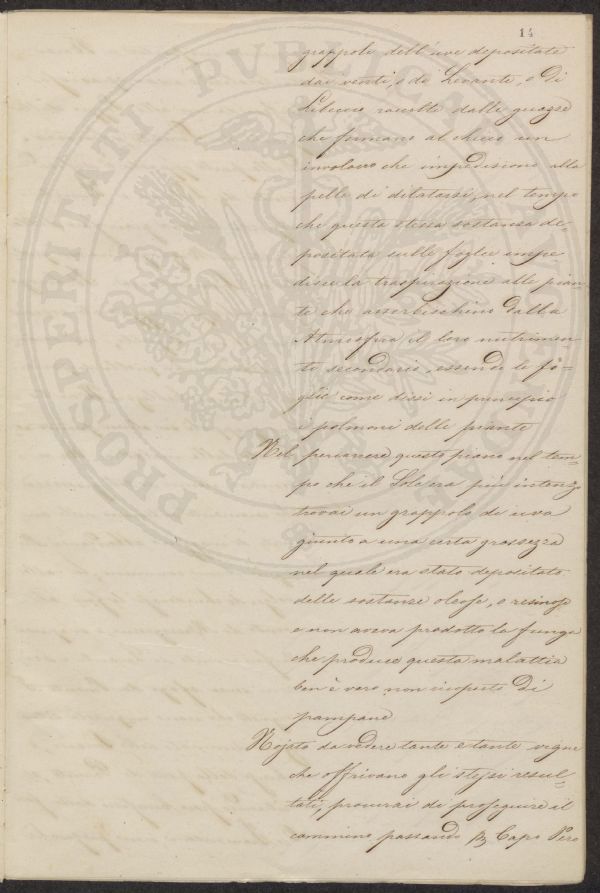 14
grappolo dell'uve depositate
dai venti, o di Levante, o di
Libeccio raccolte dalle guazze
che formano al chicco un
involucro che impediscono alla
pelle di dilatarsi, nel tempo
che questa stessa sostanza de=
positata sulle foglie impe=
disce la traspirazione alle pian=
te che asserbischino dalla
Atmosfera il loro nutrimen
to secondario, essendo le fo=
glie come dissi in principio
i polmoni delle piante
Nel percorrere questo piano nel tem=
po che il Sole era più intenzo
trovai un grappolo di uva
giunto a una certa grossezza
nel quale era stato depositato
delle sostanze oleose, o resinose
e non aveva prodotto la funga
che produce questa malattia
ben è vero non coperto di
pampane
Nojato da vedere tante e tante vigne
che offrivano gli stessi resul=
tati, procurai di proseguire il
cammino passando Capo Pero
PROSPERITATI PUBLICAE